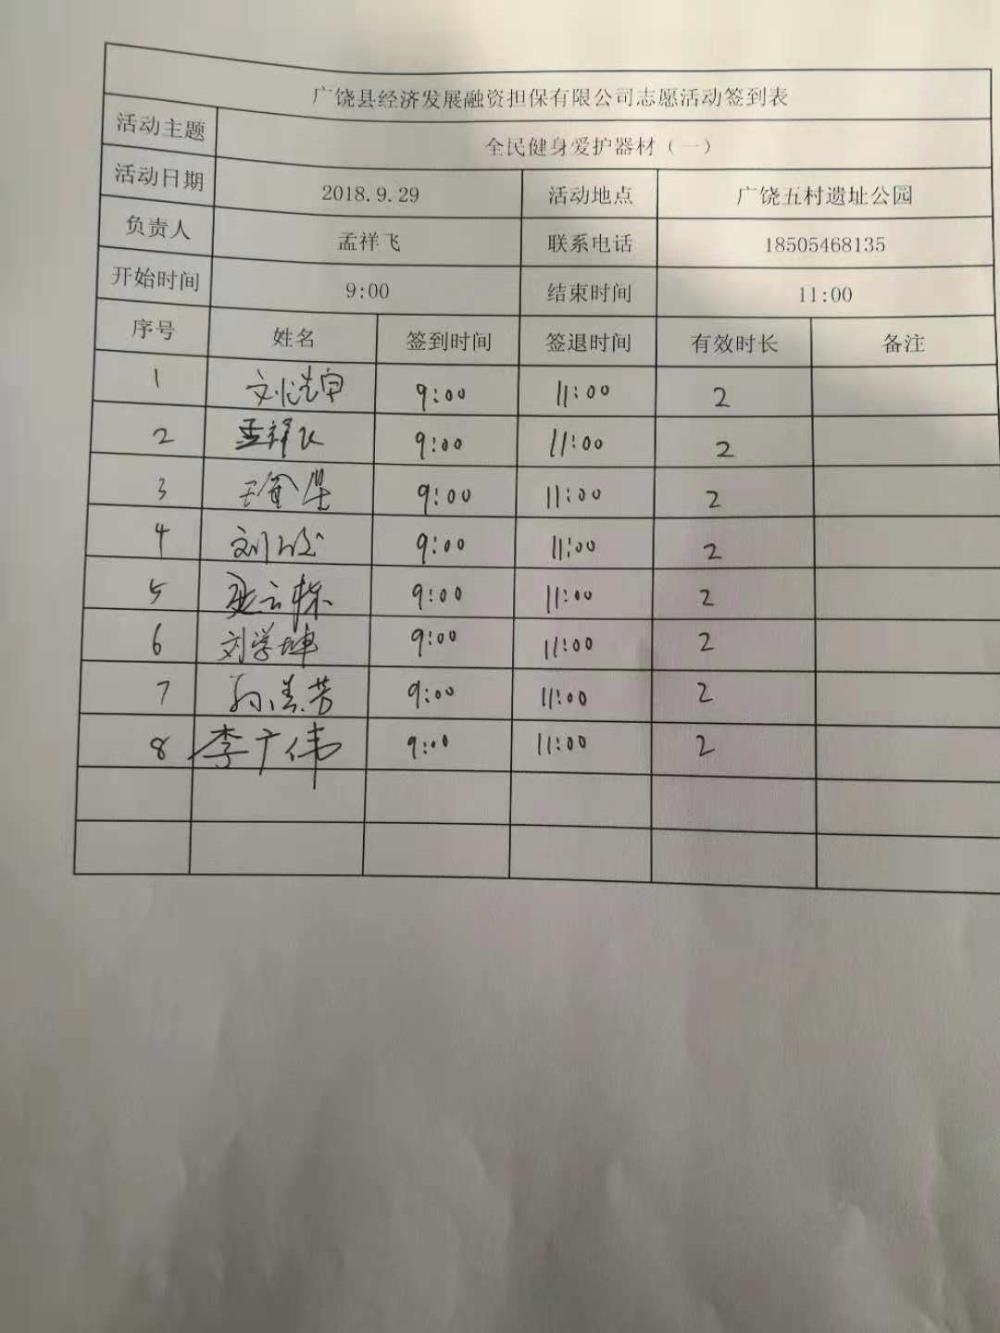 广饶县经济发展融资担保有限公司志愿活动签到表
活动主题 全民健身爱护器材（一）
活动日期 2018.9.29 活动地点 广饶五村遗址公园
负责人 孟祥飞 联系电话 18505468135
开始时间 9:00 结束时间 11:00
序号 姓名 签到时间 签退时间 有效时长 备注
1 9:00 11:00 2
2 孟祥飞 9:00 11:00 2
3 9:00 11:00 2
4 9:00 11:00 2
5 9:00 11:00 2
6 刘学坤 9:00 11:00 2
7 9:00 11:00 2
8 李广伟 9:00 11:00 2